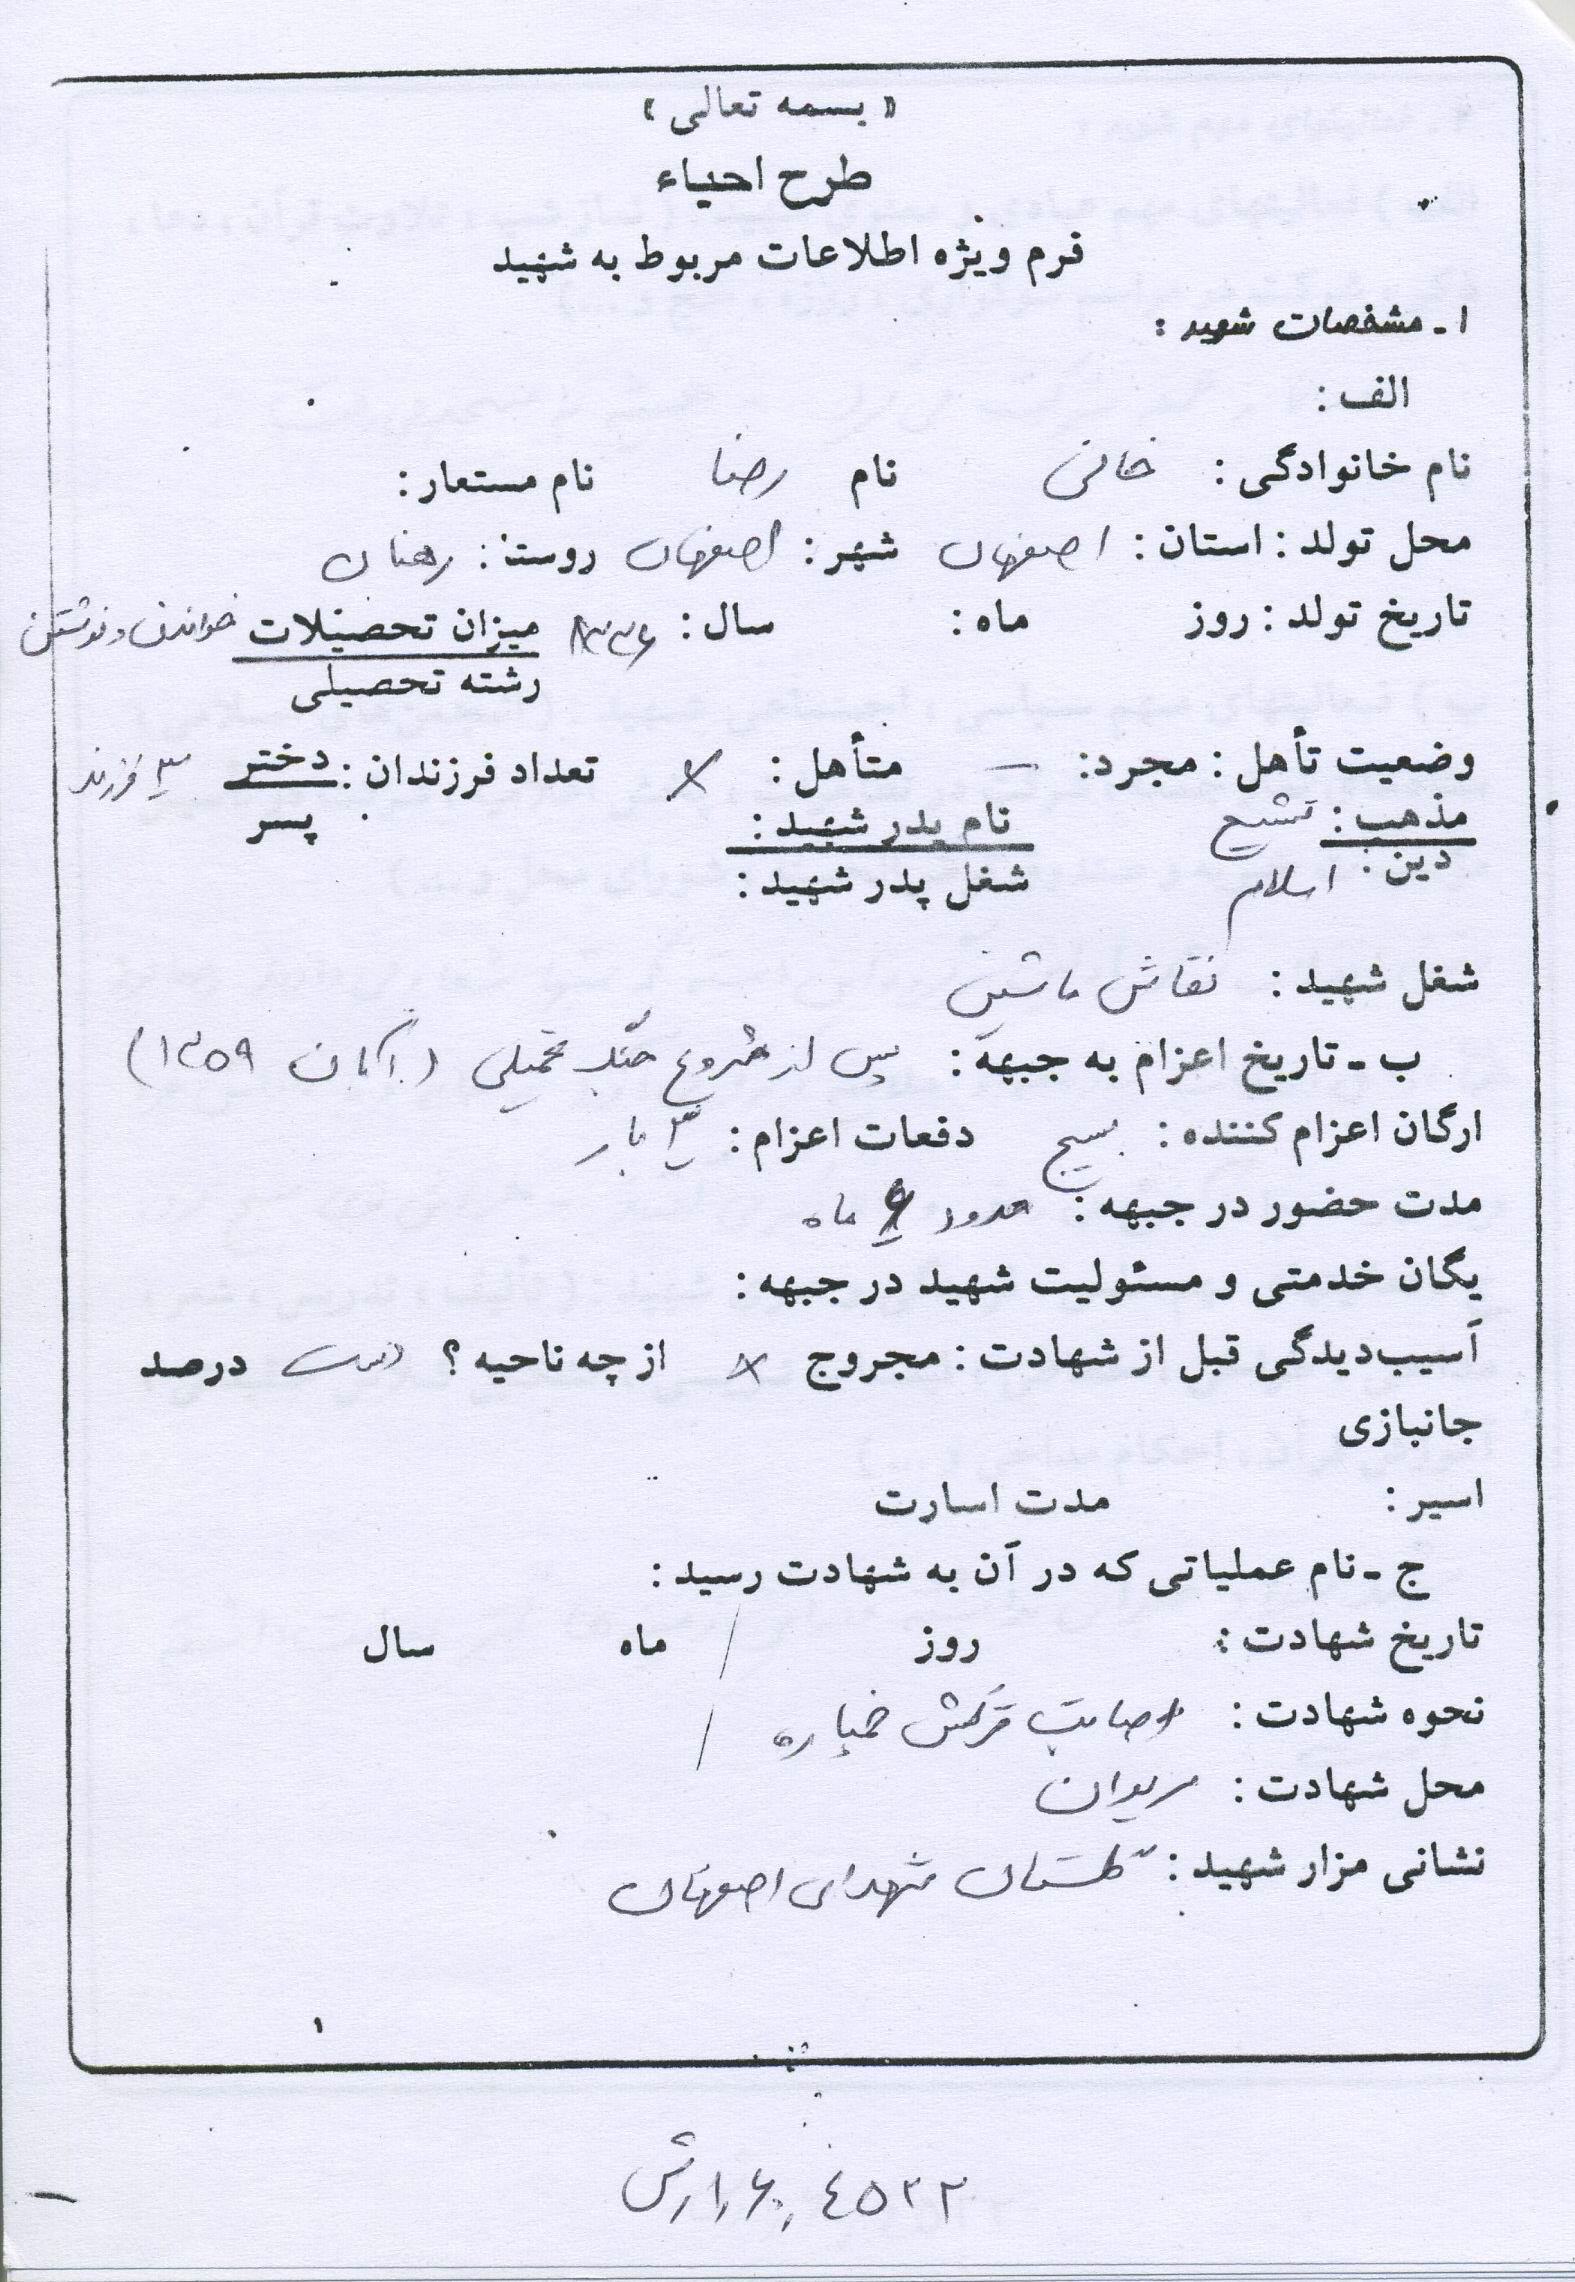 « بسمه تعالی »
طرح احیاء
فرم ویژه اطلاعات مربوط به شهید
۱ ـ مشخصات شهید :
الف :
نام خانوادگی : خانی نام رضا نام مستعار :
محل تولد : استان : اصفهان شهر : اصفهان روستا : رهنان
تاریخ تولد : روز ماه : سال : ۱۳۳۶ میزان تحصیلات خواندن و نوشتن
رشته تحصیلی
وضعیت تأهل : مجرد : – متأهل : × تعداد فرزندان : دختر ۳ فرزند
پسر
مذهب : تشیع نام پدر شهید :
دین : اسلام شغل پدر شهید :
شغل شهید : نقاش ماشین
ب ـ تاریخ اعزام به جبهه : پس از شروع جنگ تحمیلی (آبان ۱۳۵۹)
ارگان اعزام کننده : بسیج دفعات اعزام : ۳ بار
مدت حضور در جبهه : حدود ۶ ماه
یگان خدمتی و مسئولیت شهید در جبهه :
آسیب‌دیدگی قبل از شهادت : مجروح × از چه ناحیه ؟ دست درصد
جانبازی
اسیر : مدت اسارت
ج ـ نام عملیاتی که در آن به شهادت رسید :
تاریخ شهادت : روز ماه سال
نحوه شهادت : اصابت ترکش خمپاره
محل شهادت : مریوان
نشانی مزار شهید : گلستان شهدای اصفهان
۱